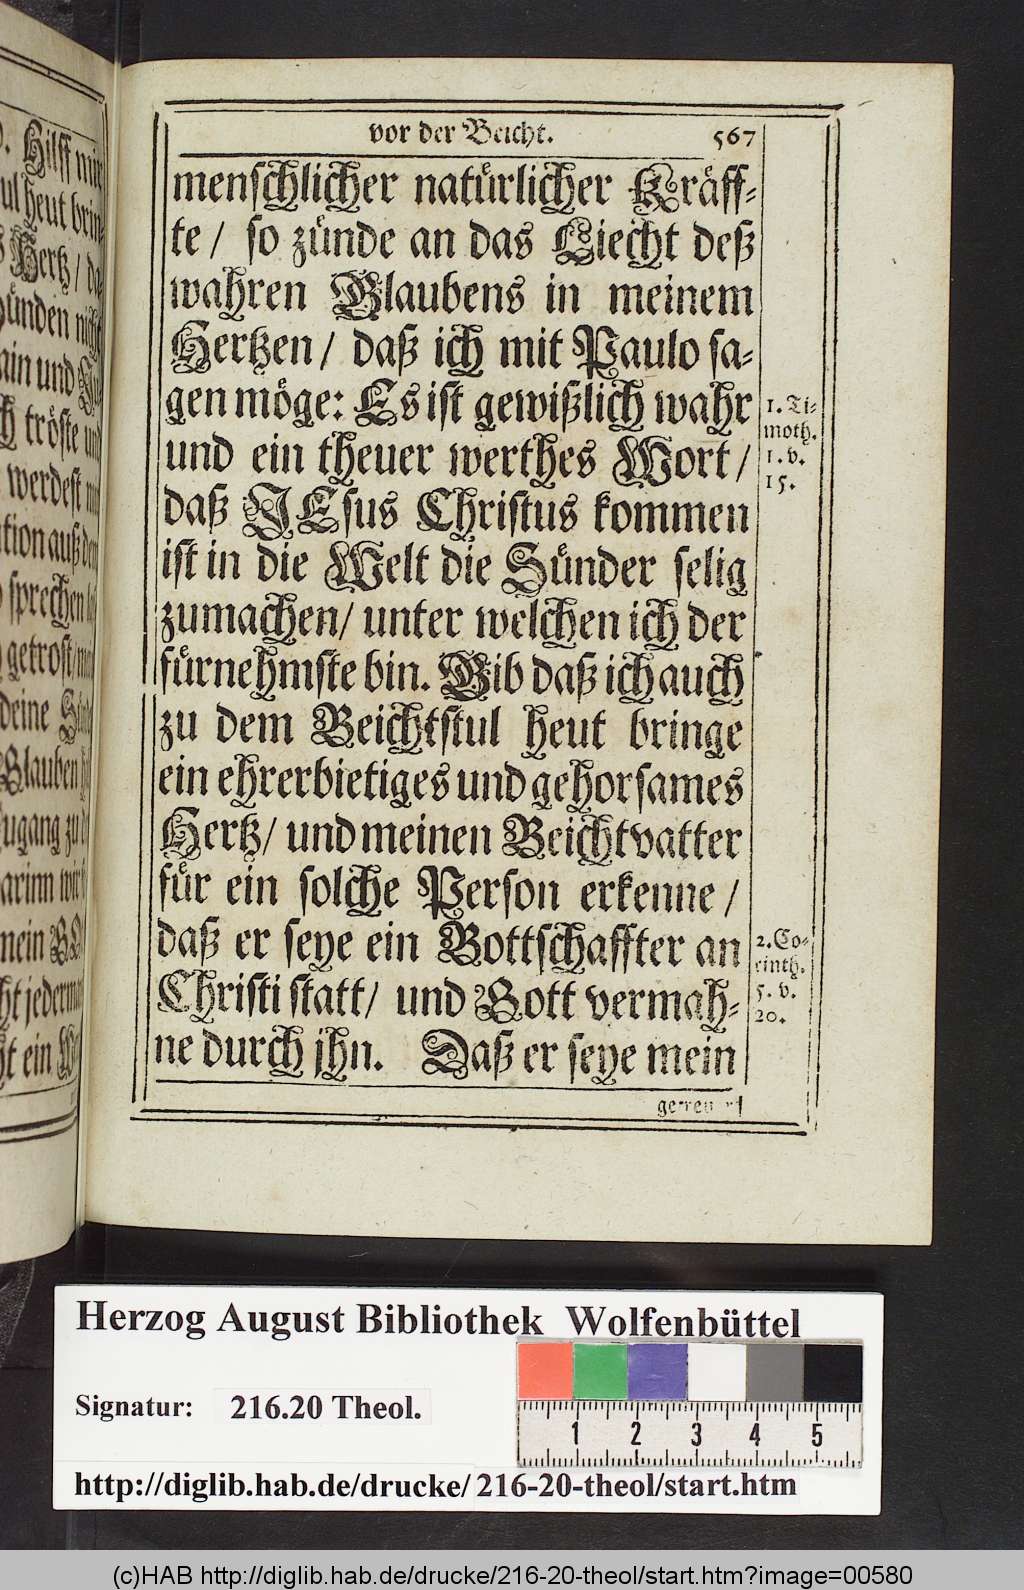 Hilff mir
heut brin-
Hertz / da
nicht
und
tröste und
werdest
auß dem
sprechen
getrost /
deine
Glauben
zu
wir
mein
ein
vor der Beicht. 567
menschlicher natürlicher Kräff-
te / so zünde an das Liecht deß
wahren Glaubens in meinem
Hertzen / daß ich mit Paulo sa-
gen möge: Es ist gewißlich wahr
und ein theuer werthes Wort /
daß JEsus Christus kommen
ist in die Welt die Sünder selig
zumachen / unter welchen ich der
fürnehmste bin. Gib daß ich auch
zu dem Beichtstul heut bringe
ein ehrerbietiges und gehorsames
Hertz / und meinen Beichtvatter
für ein solche Person erkenne /
daß er seye ein Bottschaffter an
Christi statt / und Gott vermah-
ne durch jhn. Daß er seye mein
1. Ti-
moth.
1. v.
15.
2. Co-
rinth.
5. v.
20.
Herzog August Bibliothek Wolfenbüttel
Signatur: 216.20 Theol.
1 2 3 4 5
http://diglib.hab.de/drucke/216-20-theol/start.htm
(c)HAB http://diglib.hab.de/drucke/216-20-theol/start.htm?image=00580